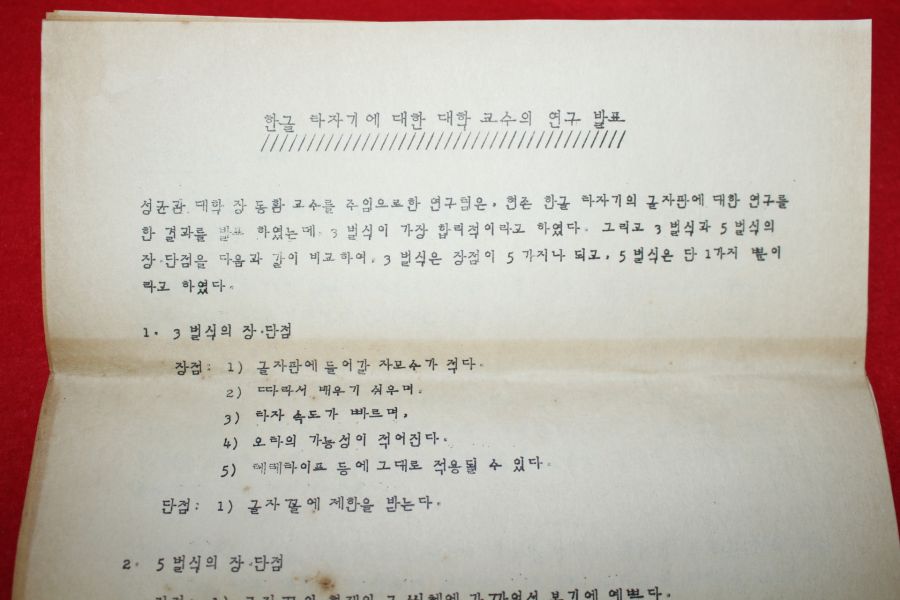 한글 타자기에 대한 대학 교수의 연구 발표
////////////////////////////////////////
성균관 대학 장 동환 교수를 주임으로한 연구팀은, 현존 한글 타자기의 글자판에 대한 연구를
한 결과를 발표 하였는데, 3 벌식이 가장 합리적이라고 하였다. 그리고 3 벌식과 5 벌식의
장·단점을 다음과 같이 비교하여, 3 벌식은 장점이 5 가지나 되고, 5 벌식은 단 1가지 뿐이
라고 하였다.
1. 3 벌식의 장·단점
장점: 1) 글자판에 들어갈 자모수가 적다.
2) 따라서 배우기 쉬우며.
3) 타자 속도가 빠르며,
4) 오타의 가능성이 적어진다.
5) 테레타이프 등에 그대로 적용될 수 있다.
단점: 1) 글자 꼴에 제한을 받는다.
2. 5 벌식의 장·단점
장점: 1) 글자 꼴이 현재의 가까워서 보기에 예쁘다.